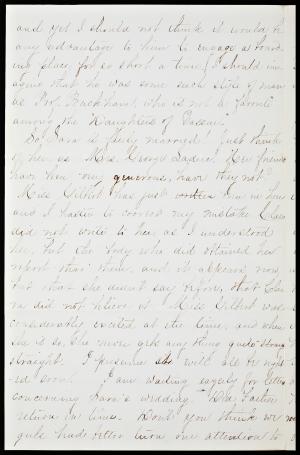 and yet I should not think it would be
any advantage to them to engage a board-
ing place for so short a time. I should im-
agine that he was some such style of man
as Prof. Backhaus, who is not a favorite
among the "Daughters of Vassar."
So, Sara is really married! Just think
of her as Mrs. George. Her friends
have been very generous, have they not?
Miss Gilbert has just been in here
and I hasten to correct my mistake. Clara
did not write to her, as I understood
her, but the lady who did obtained her
report thro' them, and it appears now
but that she doesn't say before, that Cla-
ra did not believe it. Miss Gilbert was
considerably excited at the time, and when
she is so, she never gets any thing quite
straight. I presume all will be right-
ed soon. I am waiting eagerly for letters
concerning Sara's wedding.
return in time. Don't you think we
quite had better turn our attention to